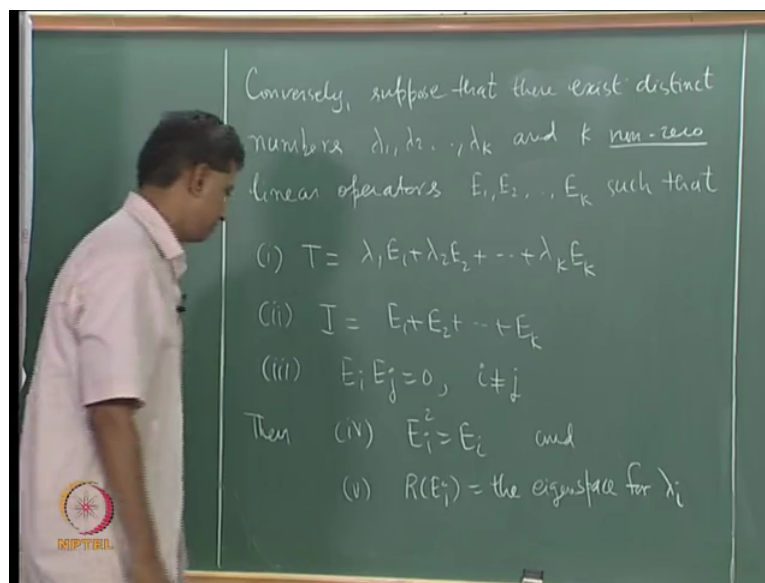 Conversely, suppose that there exist distinct
numbers λ₁, λ₂, .., λₖ and k non-zero
linear operators E₁, E₂, .., Eₖ such that
(i) T = λ₁E₁+λ₂E₂+ ··· +λₖEₖ
(ii) I = E₁+E₂+ ··· +Eₖ
(iii) EᵢEⱼ=0, i≠j
Then (iv) Eᵢ²=Eᵢ and
(v) R(Eᵢ) = the eigenspace for λᵢ
NPTEL